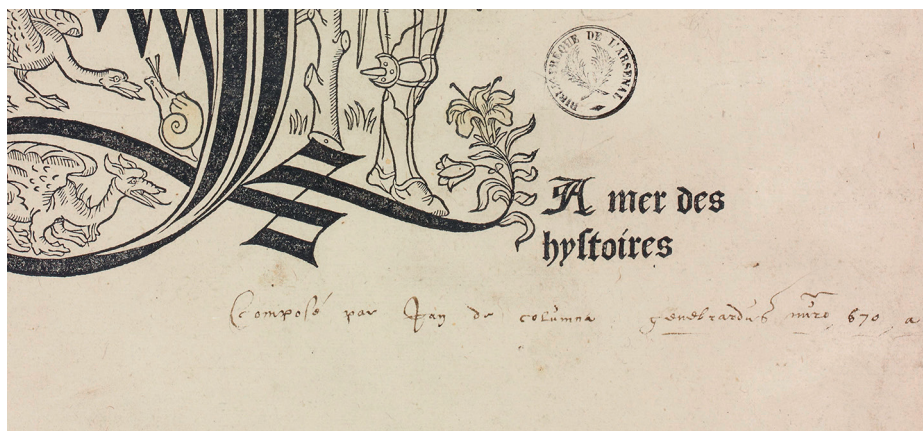 BIBLIOTHEQUE DE L'ARSENAL
A mer des
hystoires
Composé par Jan de columna genebrardus nu̅ro 670 a